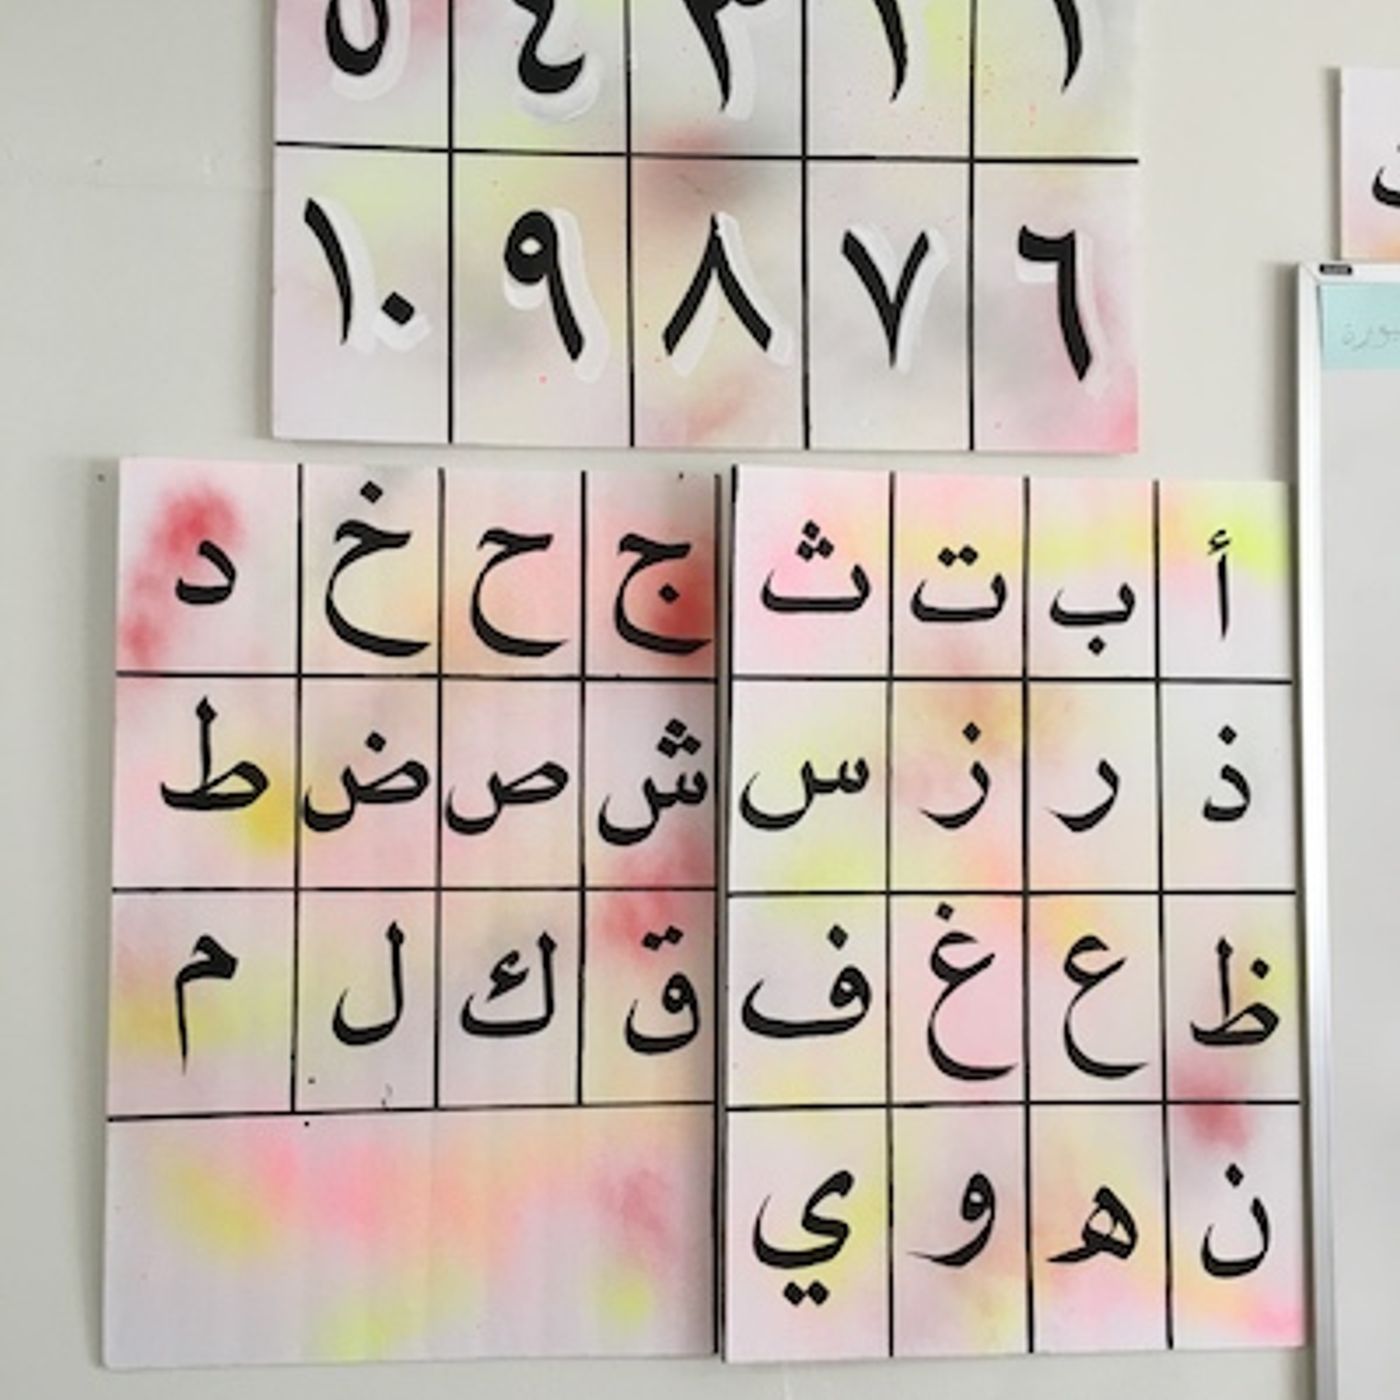 ١ ٢ ٣ ٤ ٥
٦ ٧ ٨ ٩ ١٠
أ ب ت ث ج ح خ د
ذ ر ز س ش ص ض ط
ظ ع غ ف ق ك ل م
ن ه و ي